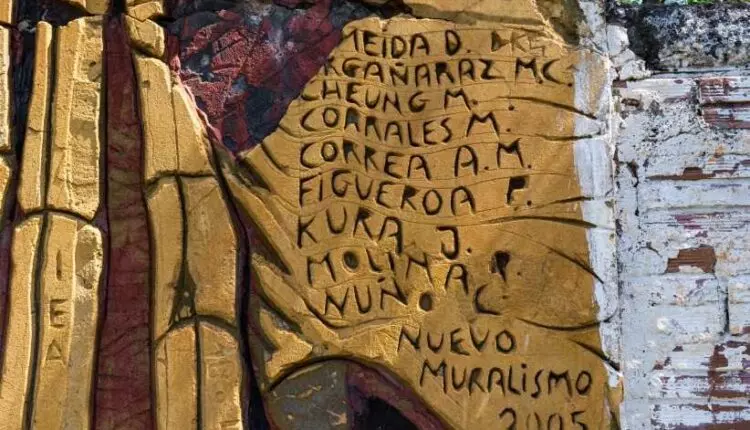 MEIDA D.
RGAÑARAZ MC
CHEUNG M.
CORRALES M.
CORREA A.M.
FIGUEROA F.
KURA J.
MOLINA P.
NUÑO C.
NUEVO
MURALISMO
2005
IEA